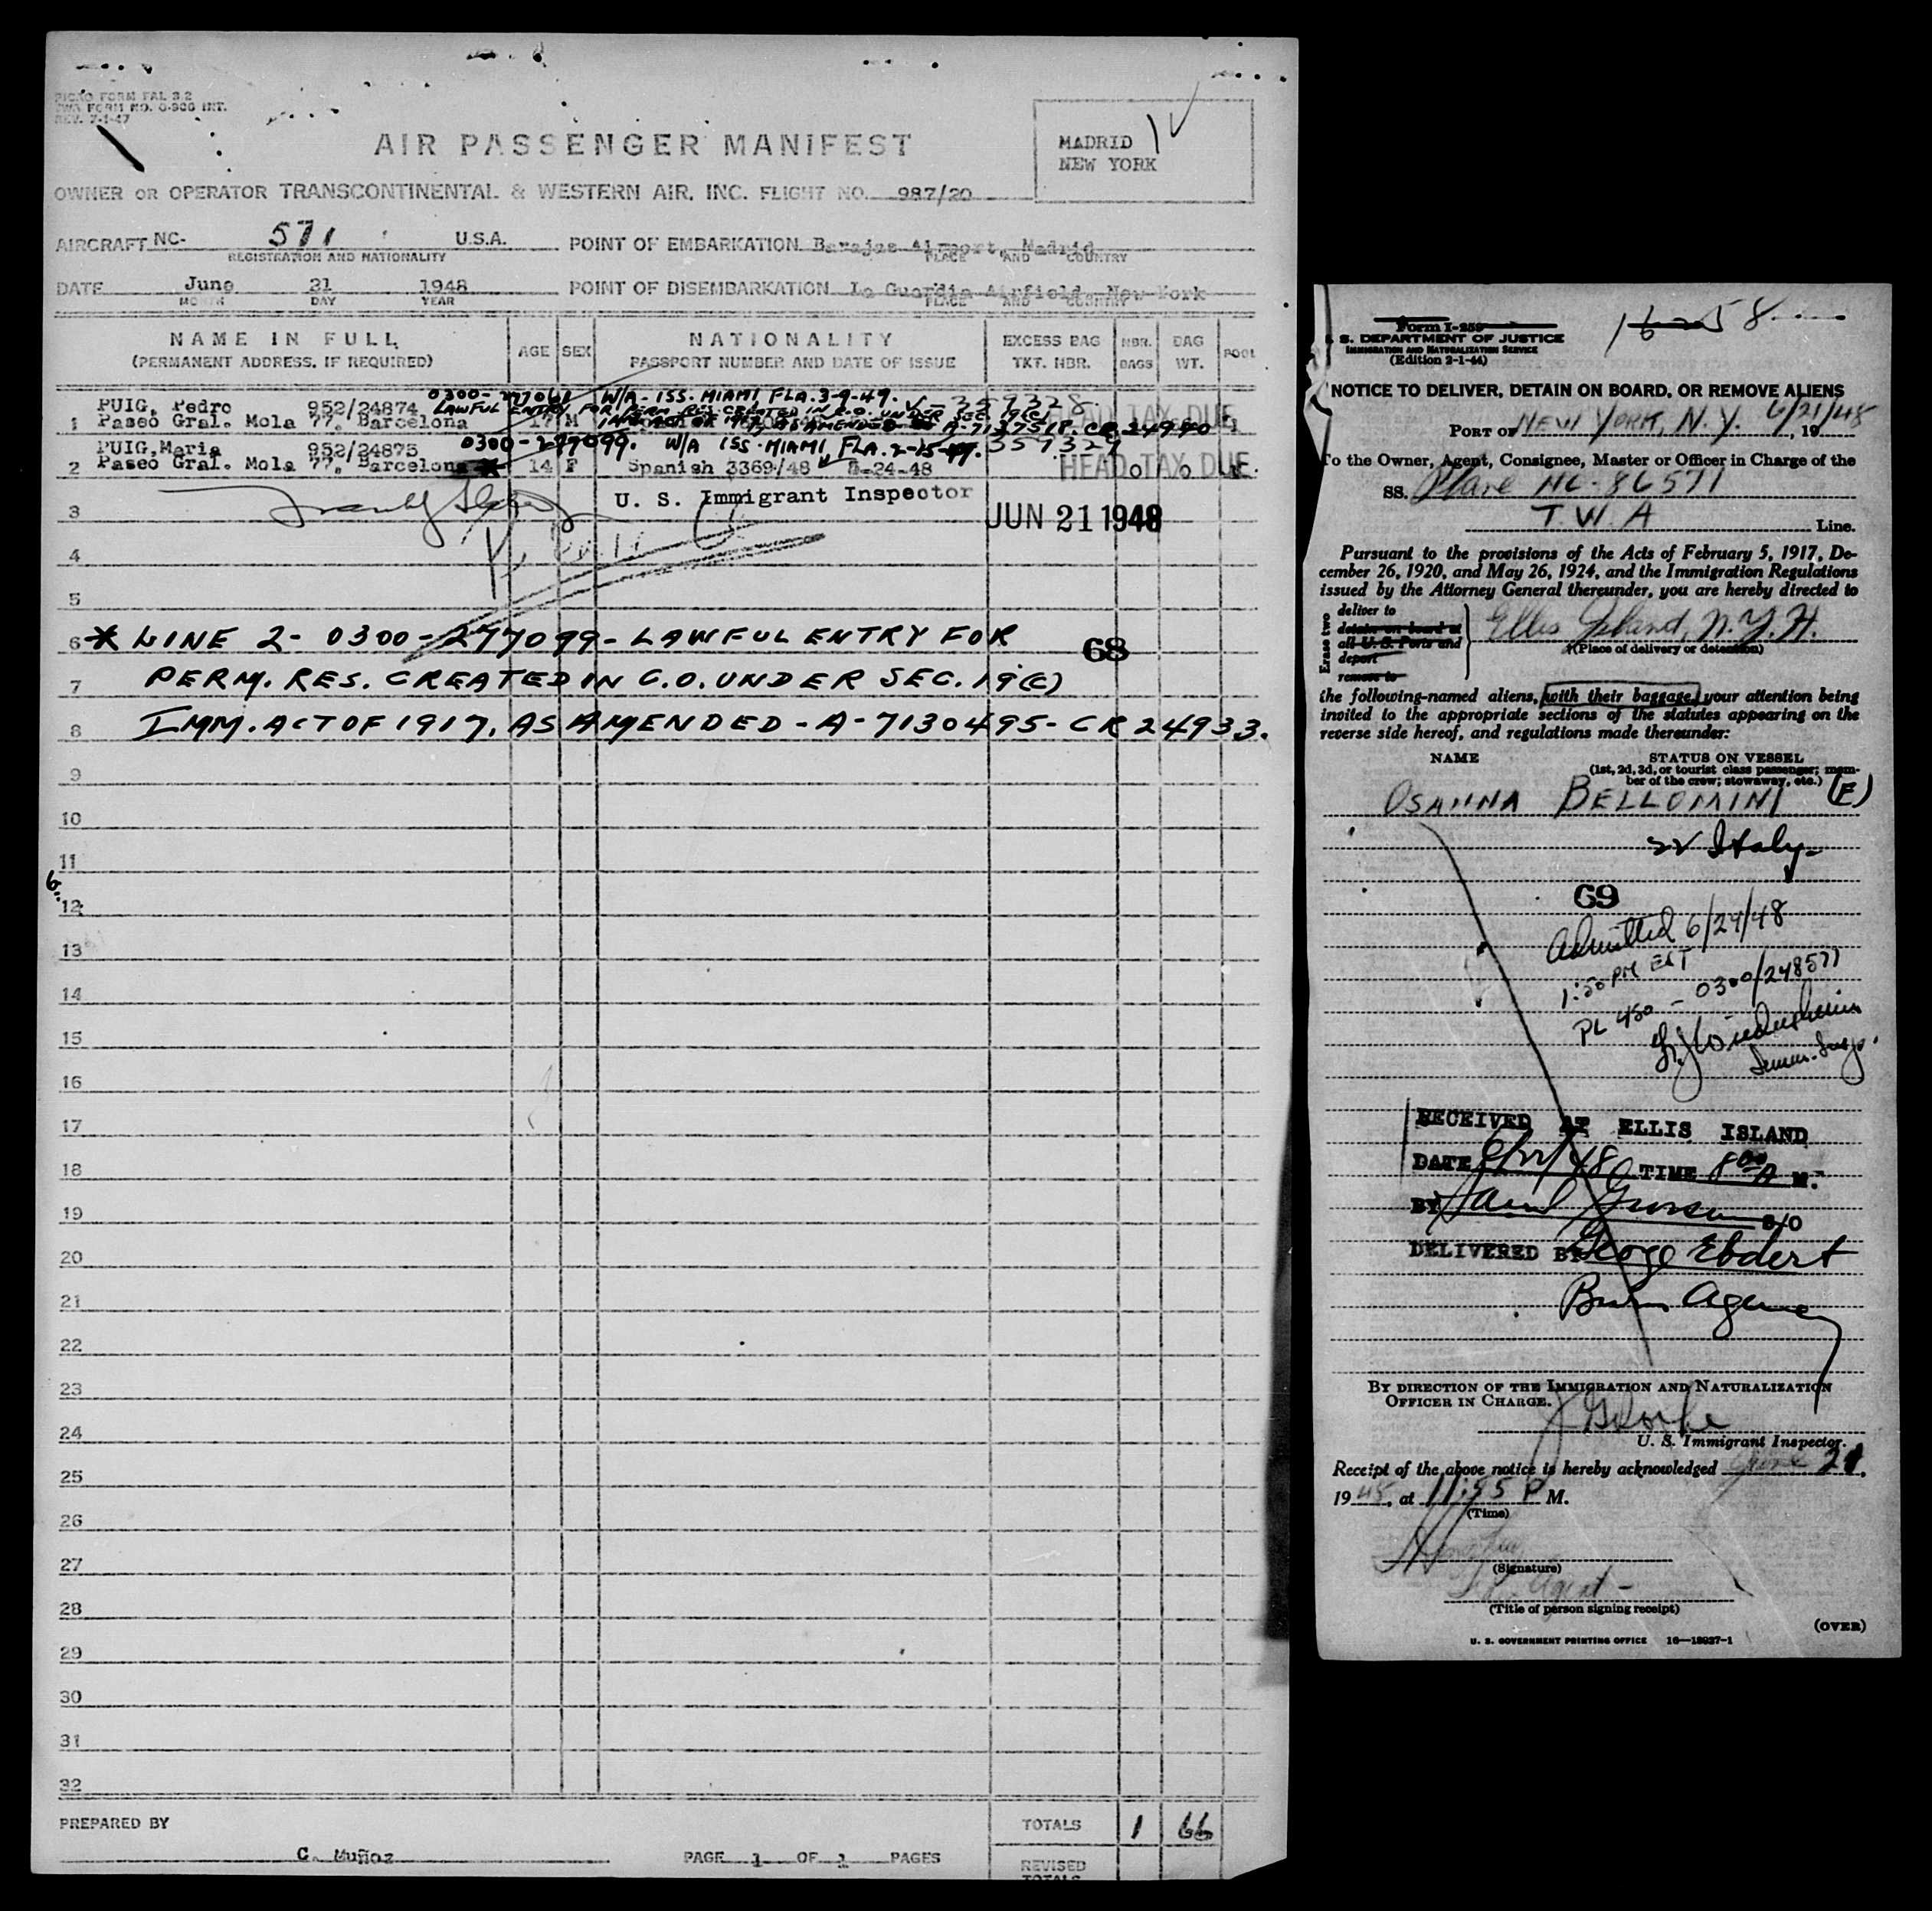 PICAO FORM FAL 3-2
TWA FORM NO. O-906 INT.
REV. 7-1-47
AIR PASSENGER MANIFEST
MADRID
NEW YORK
OWNER OR OPERATOR TRANSCONTINENTAL & WESTERN AIR, INC. FLIGHT NO. 987/20
AIRCRAFT NC- 571 U.S.A. POINT OF EMBARKATION Barajas Airport, Madrid
REGISTRATION AND NATIONALITY PLACE AND COUNTRY
DATE June 21 1948 POINT OF DISEMBARKATION La Guardia Airfield New York
MONTH DAY YEAR PLACE AND COUNTRY
NAME IN FULL AGE SEX NATIONALITY EXCESS BAG NBR. BAG POOL
(PERMANENT ADDRESS, IF REQUIRED) PASSPORT NUMBER AND DATE OF ISSUE TKT. NBR. BAGS WT.
0300-277061 W/A - ISS. MIAMI, FLA. 3-9-49. V-359328
PUIG, Pedro 952/24874 LAWFUL ENTRY FOR PERM. RES. CREATED IN C.O. UNDER SEC. 19(C) HEAD TAX DUE
1 Paseo Gral. Mola 77, Barcelona 17 M AS AMENDED A-7137518 CR 24940
PUIG, Maria 952/24875 0300-277099. W/A ISS. MIAMI, FLA. 2-15-49. 359327
2 Paseo Gral. Mola 77, Barcelona * 14 F Spanish 3369/48 5-24-48 HEAD TAX DUE
3 U. S. Immigrant Inspector JUN 21 1948
4
5
6 * LINE 2- 0300-277099- LAWFUL ENTRY FOR 68
7 PERM. RES. CREATED IN C.O. UNDER SEC. 19(C)
8 IMM. ACT OF 1917, AS AMENDED - A-7130495- CR 24933.
9
10
11
12
13
14
15
16
17
18
19
20
21
22
23
24
25
26
27
28
29
30
31
32
PREPARED BY TOTALS 1 66
C. Muñoz PAGE 1 OF 1 PAGES REVISED
TOTALS
Form I-259
U. S. DEPARTMENT OF JUSTICE
IMMIGRATION AND NATURALIZATION SERVICE
(Edition 2-1-44)
NOTICE TO DELIVER, DETAIN ON BOARD, OR REMOVE ALIENS
PORT OF NEW YORK, N. Y. 6/21/48, 19
To the Owner, Agent, Consignee, Master or Officer in Charge of the
SS. Plane NC-86571
T. W. A Line.
Pursuant to the provisions of the Acts of February 5, 1917, De-
cember 26, 1920, and May 26, 1924, and the Immigration Regulations
issued by the Attorney General thereunder, you are hereby directed to
Erase two
deliver to
detain on board at
all U. S. Ports and
deport
remove to
Ellis Island, N. Y. H.
(Place of delivery or detention)
the following-named aliens, with their baggage, your attention being
invited to the appropriate sections of the statutes appearing on the
reverse side hereof, and regulations made thereunder:
NAME STATUS ON VESSEL
(1st, 2d, 3d, or tourist class passenger; mem-
ber of the crew; stowaway, etc.)
OSANNA BELLOMINI (E)
Italy
69
Admitted 6/24/48
1:50 PM EST
PL 450 - 0300/248577
RECEIVED AT ELLIS ISLAND
DATE 6/22/48 TIME 8 00 A M.
BY S/O
DELIVERED BY George Ebdert
Burns Agency
BY DIRECTION OF THE IMMIGRATION AND NATURALIZATION
OFFICER IN CHARGE.
U. S. Immigrant Inspector.
Receipt of the above notice is hereby acknowledged June 21,
19 48, at 11:55 P M.
(Time)
(Signature)
Agent -
(Title of person signing receipt)
(OVER)
U. S. GOVERNMENT PRINTING OFFICE 16-18937-1